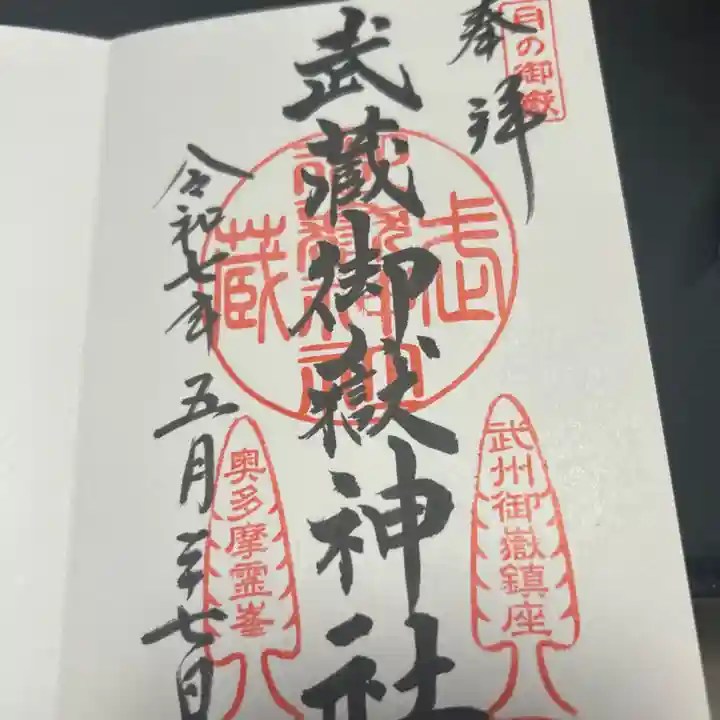 日の御嶽
奉拝
武州御嶽鎮座
武蔵御嶽神社
武蔵
奥多摩霊峯
令和七年五月二十七日